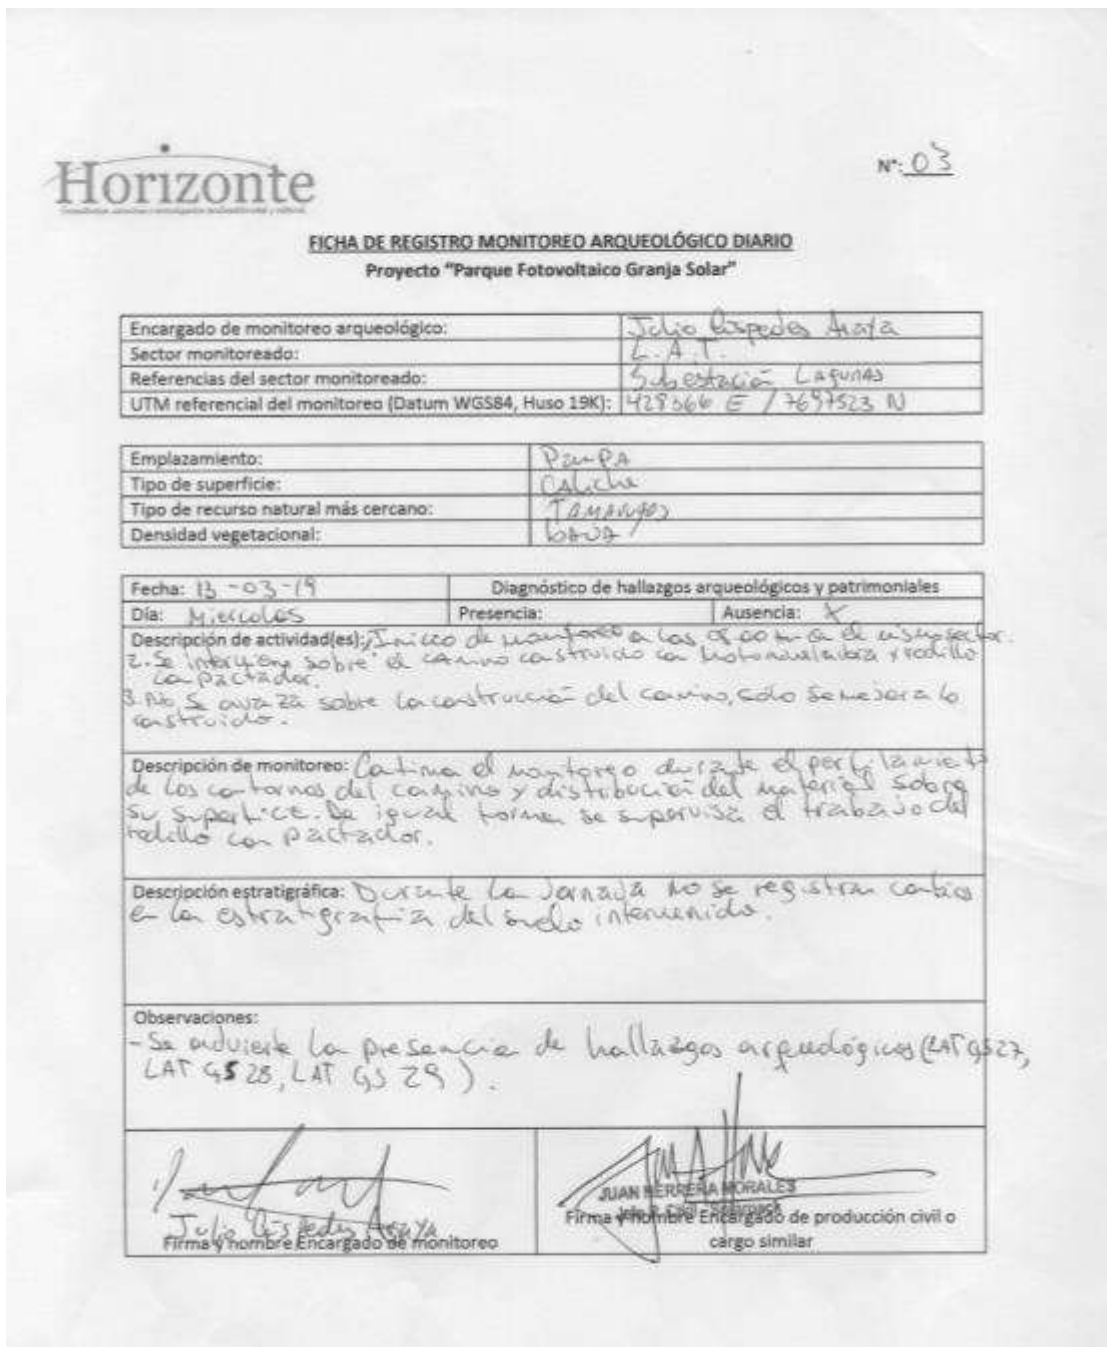 Horizonte
N°: 03
FICHA DE REGISTRO MONITOREO ARQUEOLÓGICO DIARIO
Proyecto "Parque Fotovoltaico Granja Solar"
Encargado de monitoreo arqueológico: Julio Céspedes Araya
Sector monitoreado: L.A.T.
Referencias del sector monitoreado: Subestación Lagunas
UTM referencial del monitoreo (Datum WGS84, Huso 19K): 428366 E / 7697523 N
Emplazamiento: Pampa
Tipo de superficie: Caliche
Tipo de recurso natural más cercano: Tamarugos
Densidad vegetacional: baja
Fecha: 13-03-19 Diagnóstico de hallazgos arqueológicos y patrimoniales
Día: Miercoles Presencia: Ausencia: X
Descripción de actividad(es): Inicio de monitoreo a las 08:00 en el mismo sector.
2. Se interviene sobre el camino construido con motoniveladora y rodillo
compactador.
3. No se avanza sobre la construcción del camino, solo se mejora lo
construido.
Descripción de monitoreo: Continua el monitoreo durante el perfilamiento
de los contornos del camino y distribución del material sobre
su superficie. De igual forma se supervisa el trabajo del
rodillo compactador.
Descripción estratigráfica: Durante la Jornada no se registran cambios
en la estratigrafía del suelo intervenido.
Observaciones:
- Se advierte la presencia de hallazgos arqueológicos (LAT GS 27,
LAT GS 28, LAT GS 29).
Julio Céspedes Araya
Firma y nombre Encargado de monitoreo
JUAN HERRERA MORALES
Firma y nombre Encargado de producción civil o
cargo similar